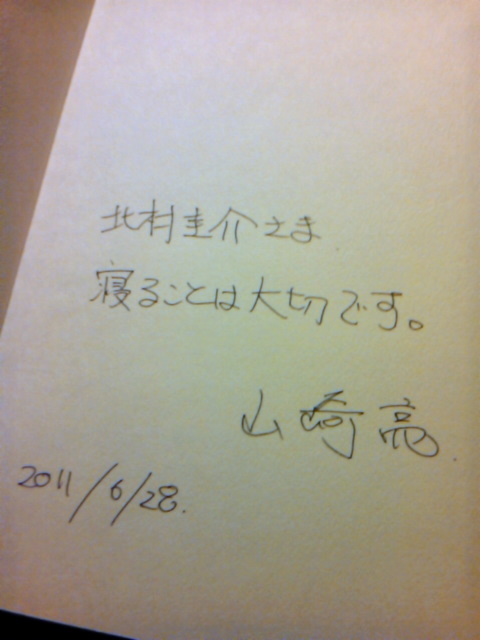 北村圭介さま
寝ることは大切です。
山崎亮.
2011/6/28.